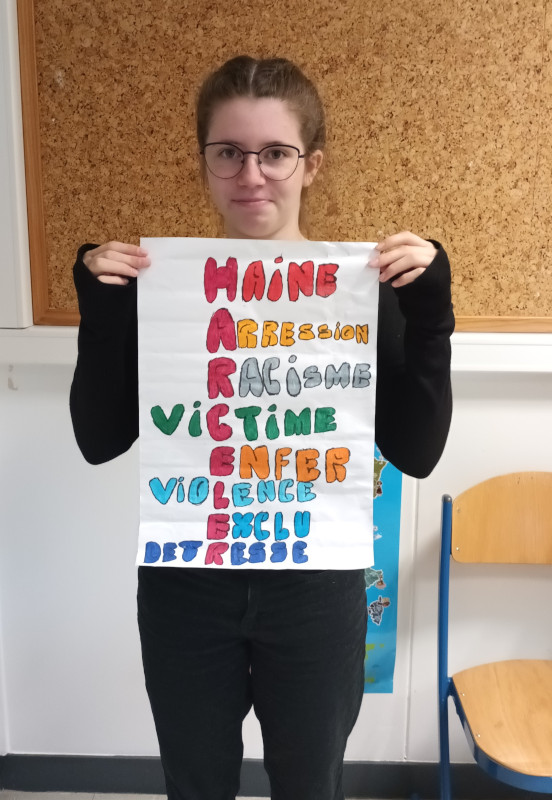 HAINE
ARRESSION
RACISME
VICTIME
ENFER
VIOLENCE
EXCLU
DETRESSE